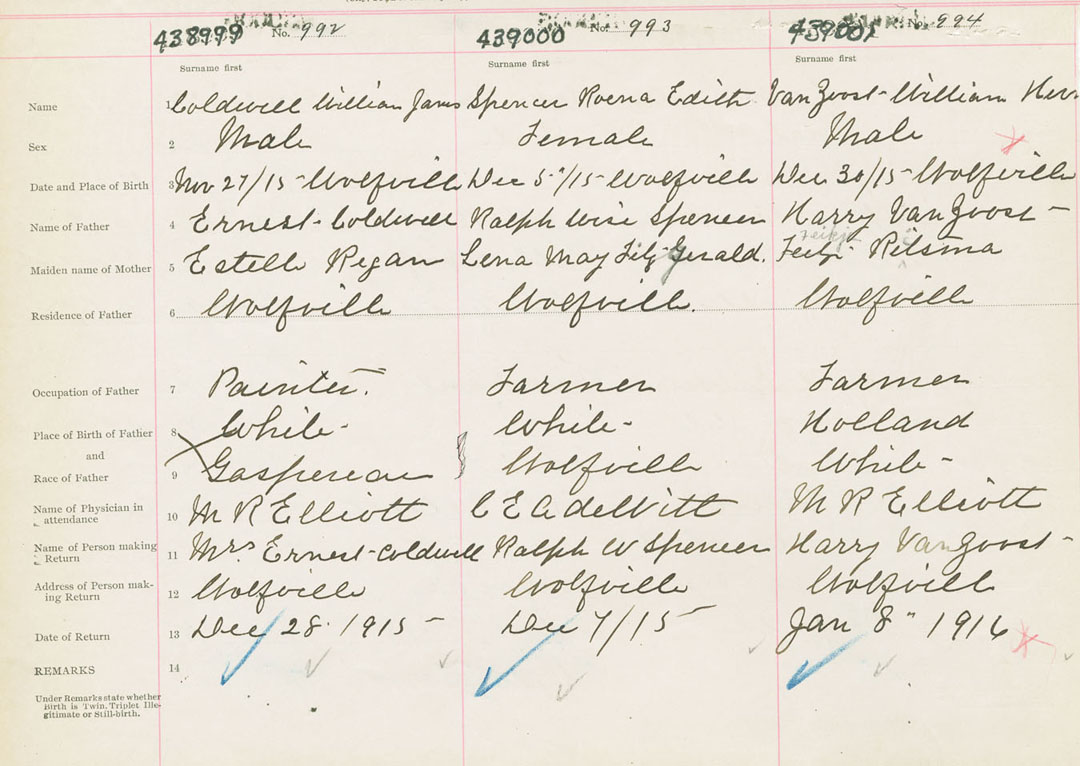 438999 No. 992 439000 No. 993 439001 No. 994
Surname first Surname first Surname first
Name 1 Coldwell William James Spencer Roena Edith VanZoost - William Her
Sex 2 Male Female Male
Date and Place of Birth 3 Nov 27/15 - Wolfville Dec 5"/15 - Wolfville Dec 30/15 - Wolfville
Name of Father 4 Ernest - Coldwell Ralph Wise Spencer Harry VanZoost -
Maiden name of Mother 5 Estelle Regan Lena May Fitz Gerald. Ritsma
Residence of Father 6 Wolfville Wolfville. Wolfville
Occupation of Father 7 Painter. Farmer Farmer
Place of Birth of Father 8 White - White - Holland
and
Race of Father 9 Gaspereau Wolfville White -
Name of Physician in attendance 10 M R Elliott C E A deWitt M R Elliott
Name of Person making Return 11 Mrs Ernest - Coldwell Ralph W Spencer Harry VanZoost -
Address of Person mak-
ing Return 12 Wolfville Wolfville Wolfville
Date of Return 13 Dec 28. 1915 - Dec 7/15 - Jan 8" 1916
REMARKS 14
Under Remarks state whether
Birth is Twin, Triplet Ille-
gitimate or Still-birth.